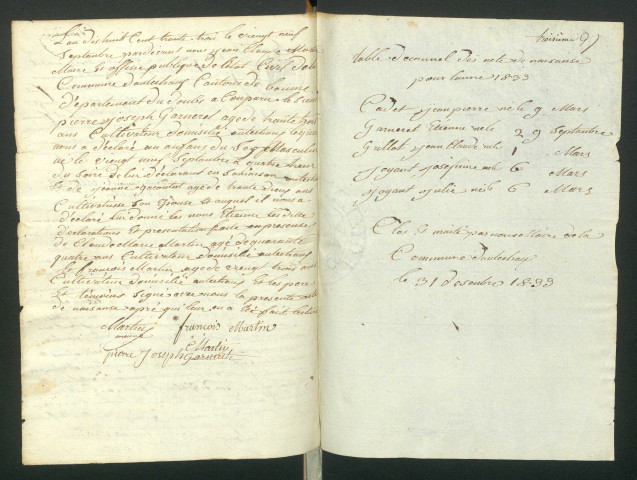 L'an dix huit Cent trente trois le vingt neuf
Septembre pardevant nous Jean Claude
Maire et officier publique de l'état Civil de la
Commune d'autechaux Canton de baume
département du doubs a Comparu le Sieur
pierre Joseph Garneret agé de trente trois
ans Cultivateur domicilié autechaux lequel
nous a déclaré un anfans du Sex Masculin
né le vingt neuf Septembre a quatre heur
du Soire de lui déclarant en Sa maison
et de jeanne agé de trente deux ans
Cultivatrisse Son épouse et auquel il nous a
déclaré lui donné les nons Etienne les dittes
déclarations et présentation faite en présence
de Claude Marie Martin agé de quarante
quatre ans Cultivateur domicilié autechaux
et françois Martin agé de vingt trois ans
Cultivateur domicilié autechaux et les pere
et témoins Signé avec nous la présente acte
de naisance apré qu'il leur en a été fait lecture
Martin françois Martin
maire C Martin
pierre Joseph Garneret
troisième
table décennal des acte de naisance
pour l'anné 1833
Cadet jeanpierre né le 9 Mars
Garneret Etienne né le 29 Septembre
Grillot jean Claude né le 1 Mars
joyant joséphine né le 6 Mars
joyant julie né le 6 Mars
Clos et arrêté par nous Maire de la
Commune d'autechaux
le 31 désenbre 1833